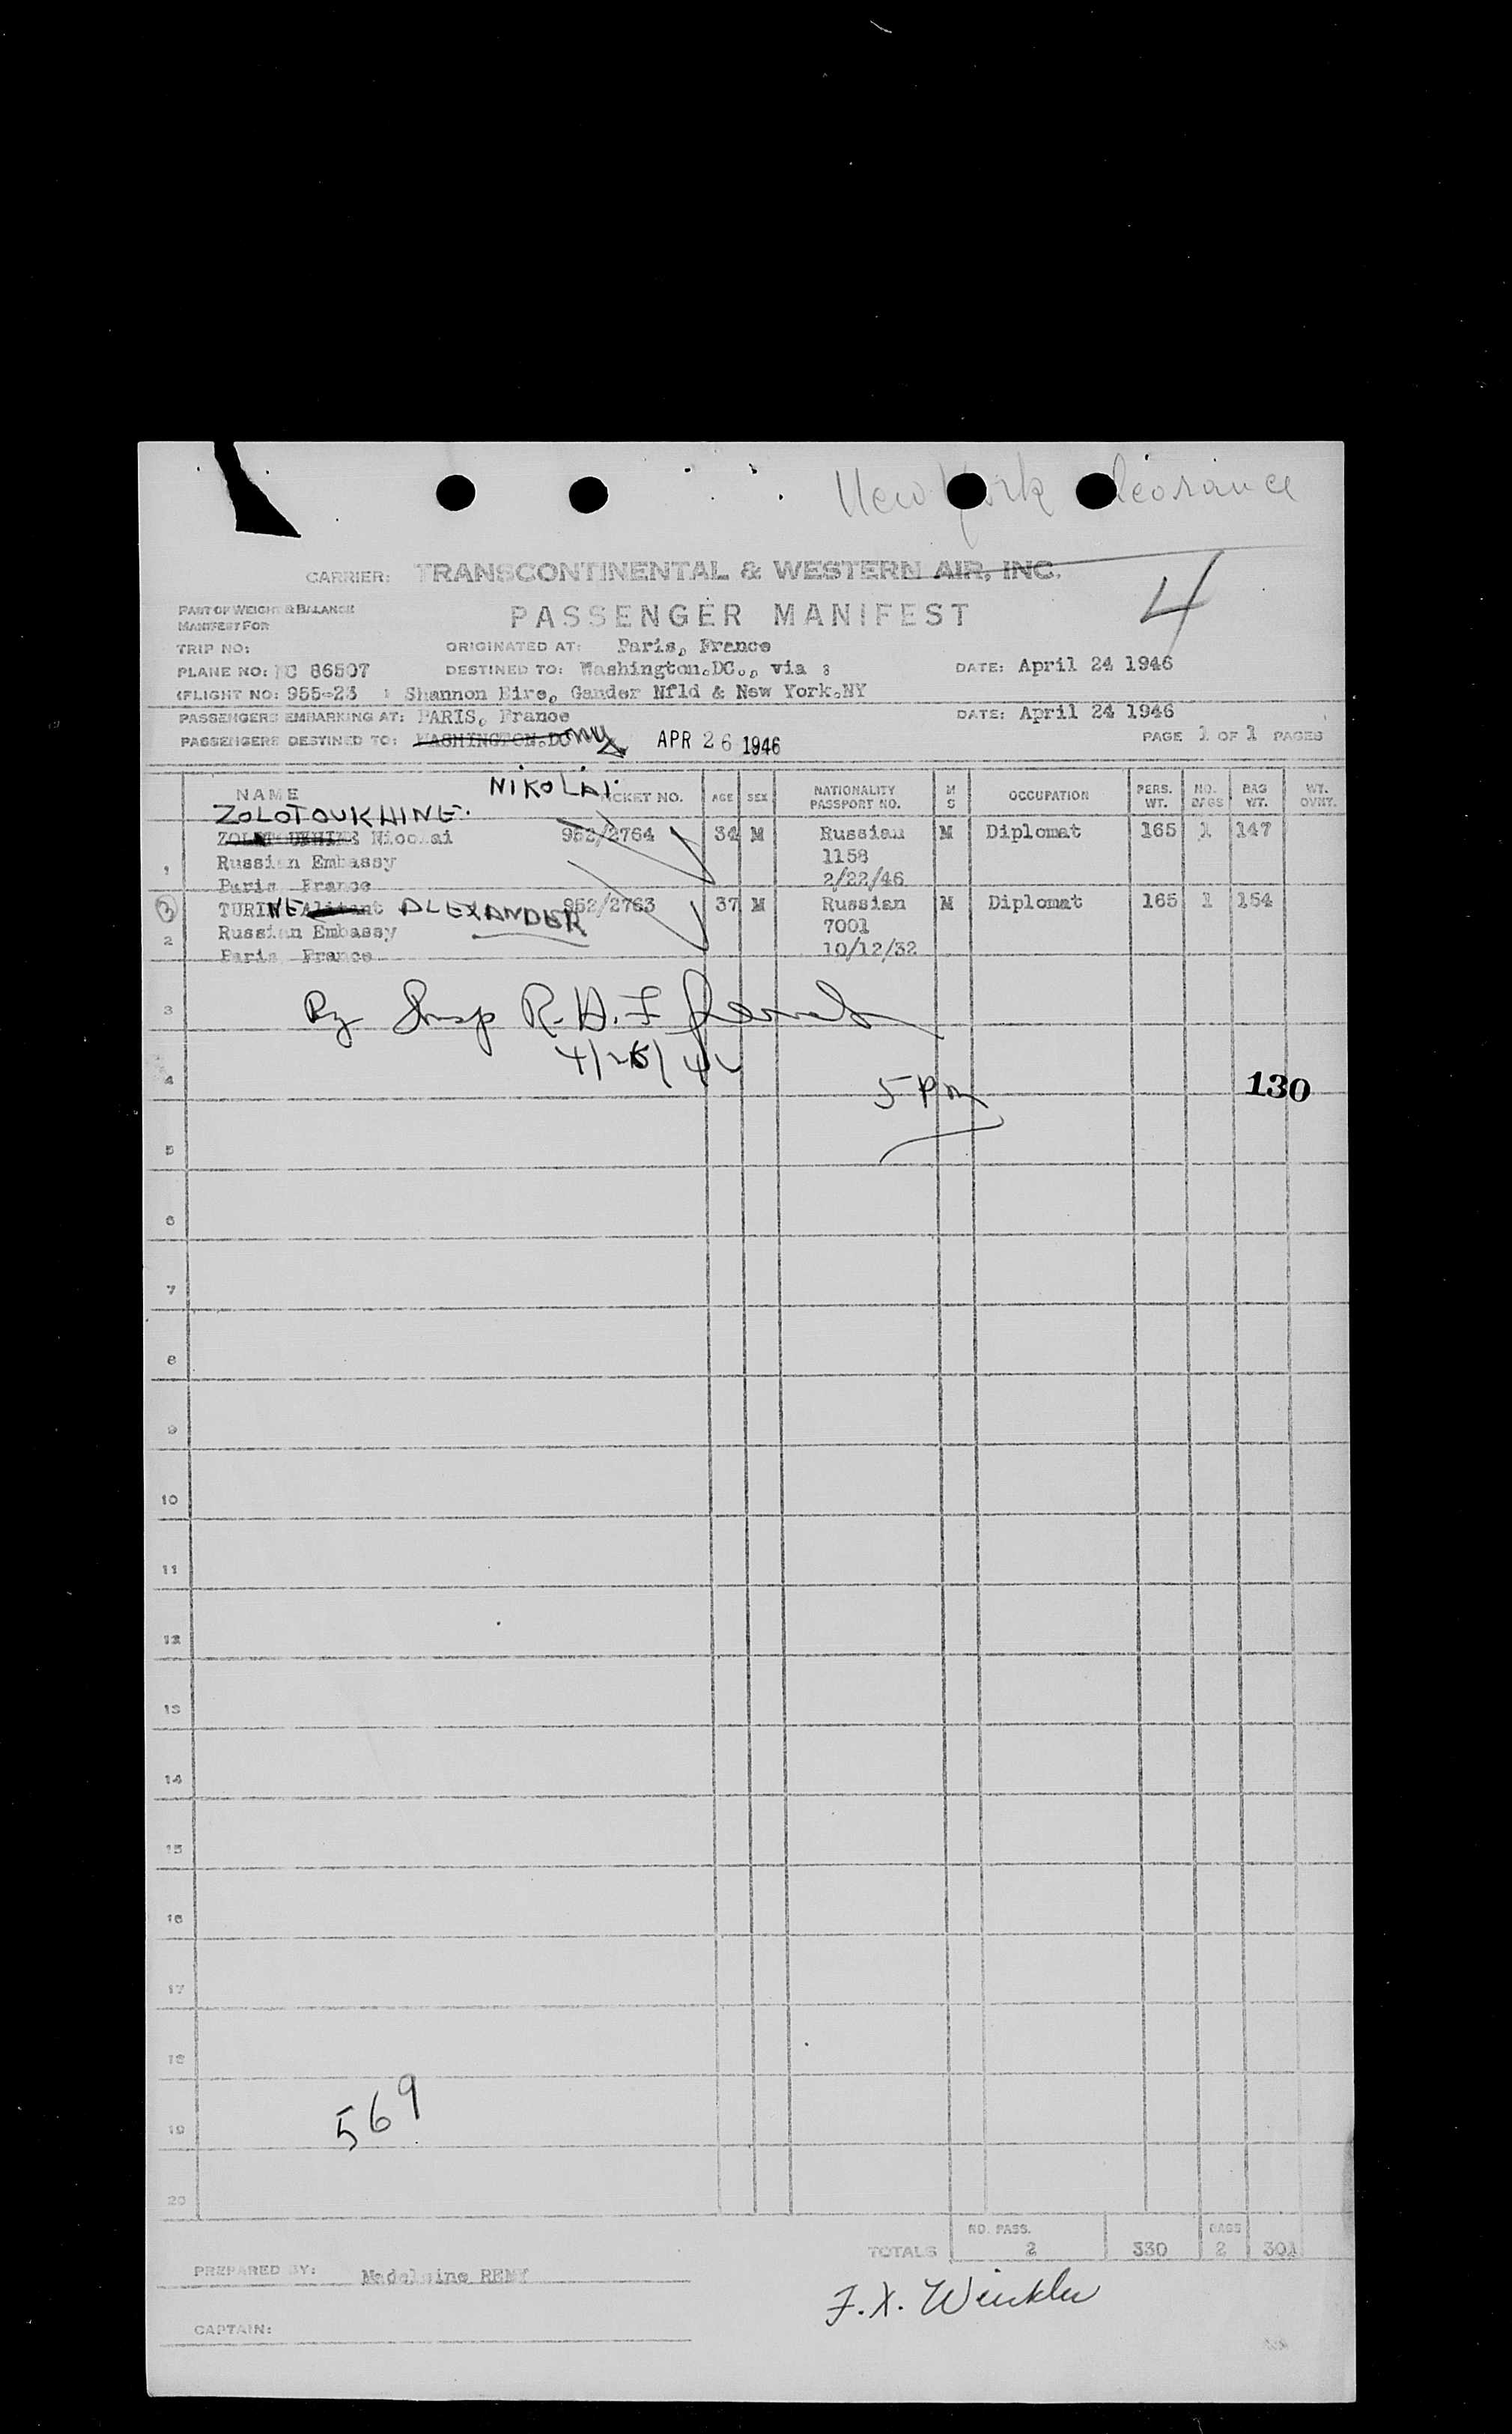 New York Clearance
4
CARRIER: TRANSCONTINENTAL & WESTERN AIR, INC.
PART OF WEIGHT & BALANCE
MANIFEST FOR
PASSENGER MANIFEST
TRIP NO: ORIGINATED AT: Paris, France
PLANE NO: NC 86507 DESTINED TO: Washington.DC., via : DATE: April 24 1946
(FLIGHT NO: 955-23 ) Shannon Eire, Gander Nfld & New York.NY
PASSENGERS EMBARKING AT: PARIS, France DATE: April 24 1946
PASSENGERS DESTINED TO: WASHINGTON.DC NY APR 26 1946 PAGE 1 OF 1 PAGES
NIKOLAI.
NAME TICKET NO. AGE SEX NATIONALITY PASSPORT NO. M S OCCUPATION PERS. WT. NO. BAGS BAG WT. WT. OVNT.
ZOLOTOUKHINE.
Nicolai 952/2764 34 M Russian M Diplomat 165 1 147
1 Russian Embassy 1158
Paris France 2/22/46
3 TURINE ALEXANDER 952/2763 37 M Russian M Diplomat 165 1 154
2 Russian Embassy 7001
Paris France 10/12/32
3 By Insp R.H.F
4/26/46
4 5 Pm 130
5
6
7
8
9
10
11
12
13
14
15
16
17
18
569
19
20
TOTALS NO. PASS. 2 330 BAGS 2 301
PREPARED BY: Madeleine REMY
F.X. Winkler
CAPTAIN: